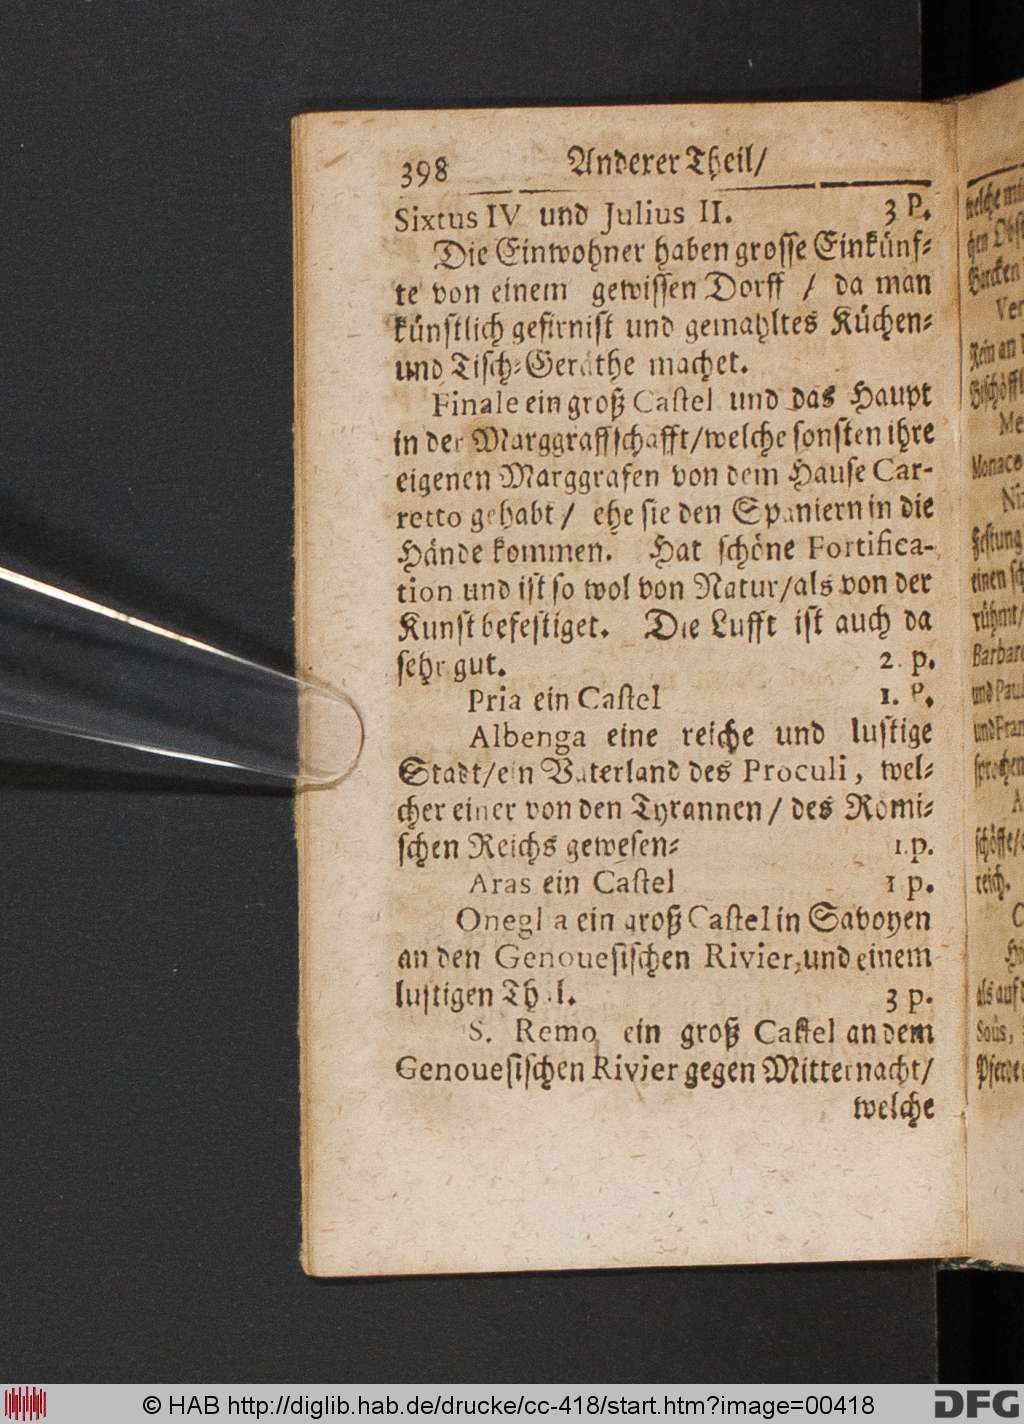 398 Anderer Theil/
Sixtus IV und Julius II. 3 p.
Die Einwohner haben grosse Einkünf-
te von einem gewissen Dorff / da man
künstlich gefirnist und gemahltes Küchen-
und Tisch-Geräthe machet.
Finale ein groß Castel und das Haupt
in der Marggraffschafft/welche sonsten ihre
eigenen Marggrafen von dem Hause Car-
retto gehabt / ehe sie den Spaniern in die
Hände kommen. Hat schöne Fortifica-
tion und ist so wol von Natur/als von der
Kunst befestiget. Die Lufft ist auch da
sehr gut. 2. p.
Pria ein Castel 1. p.
Albenga eine reiche und lustige
Stadt/ein Vaterland des Proculi, wel-
cher einer von den Tyrannen / des Römi-
schen Reichs gewesen- 1.p.
Aras ein Castel 1 p.
Oneglia ein groß Castel in Savoyen
an den Genouesischen Rivier, und einem
lustigen Thal. 3 p.
S. Remo ein groß Castel an dem
Genouesischen Rivier gegen Mitternacht/
welche
welche
gen Obst
Ver
Me
Monaco
Festung
einen
rühmt/
und
und Fran
sprochen
reich.
als auf
Pferde
© HAB http://diglib.hab.de/drucke/cc-418/start.htm?image=00418
DFG